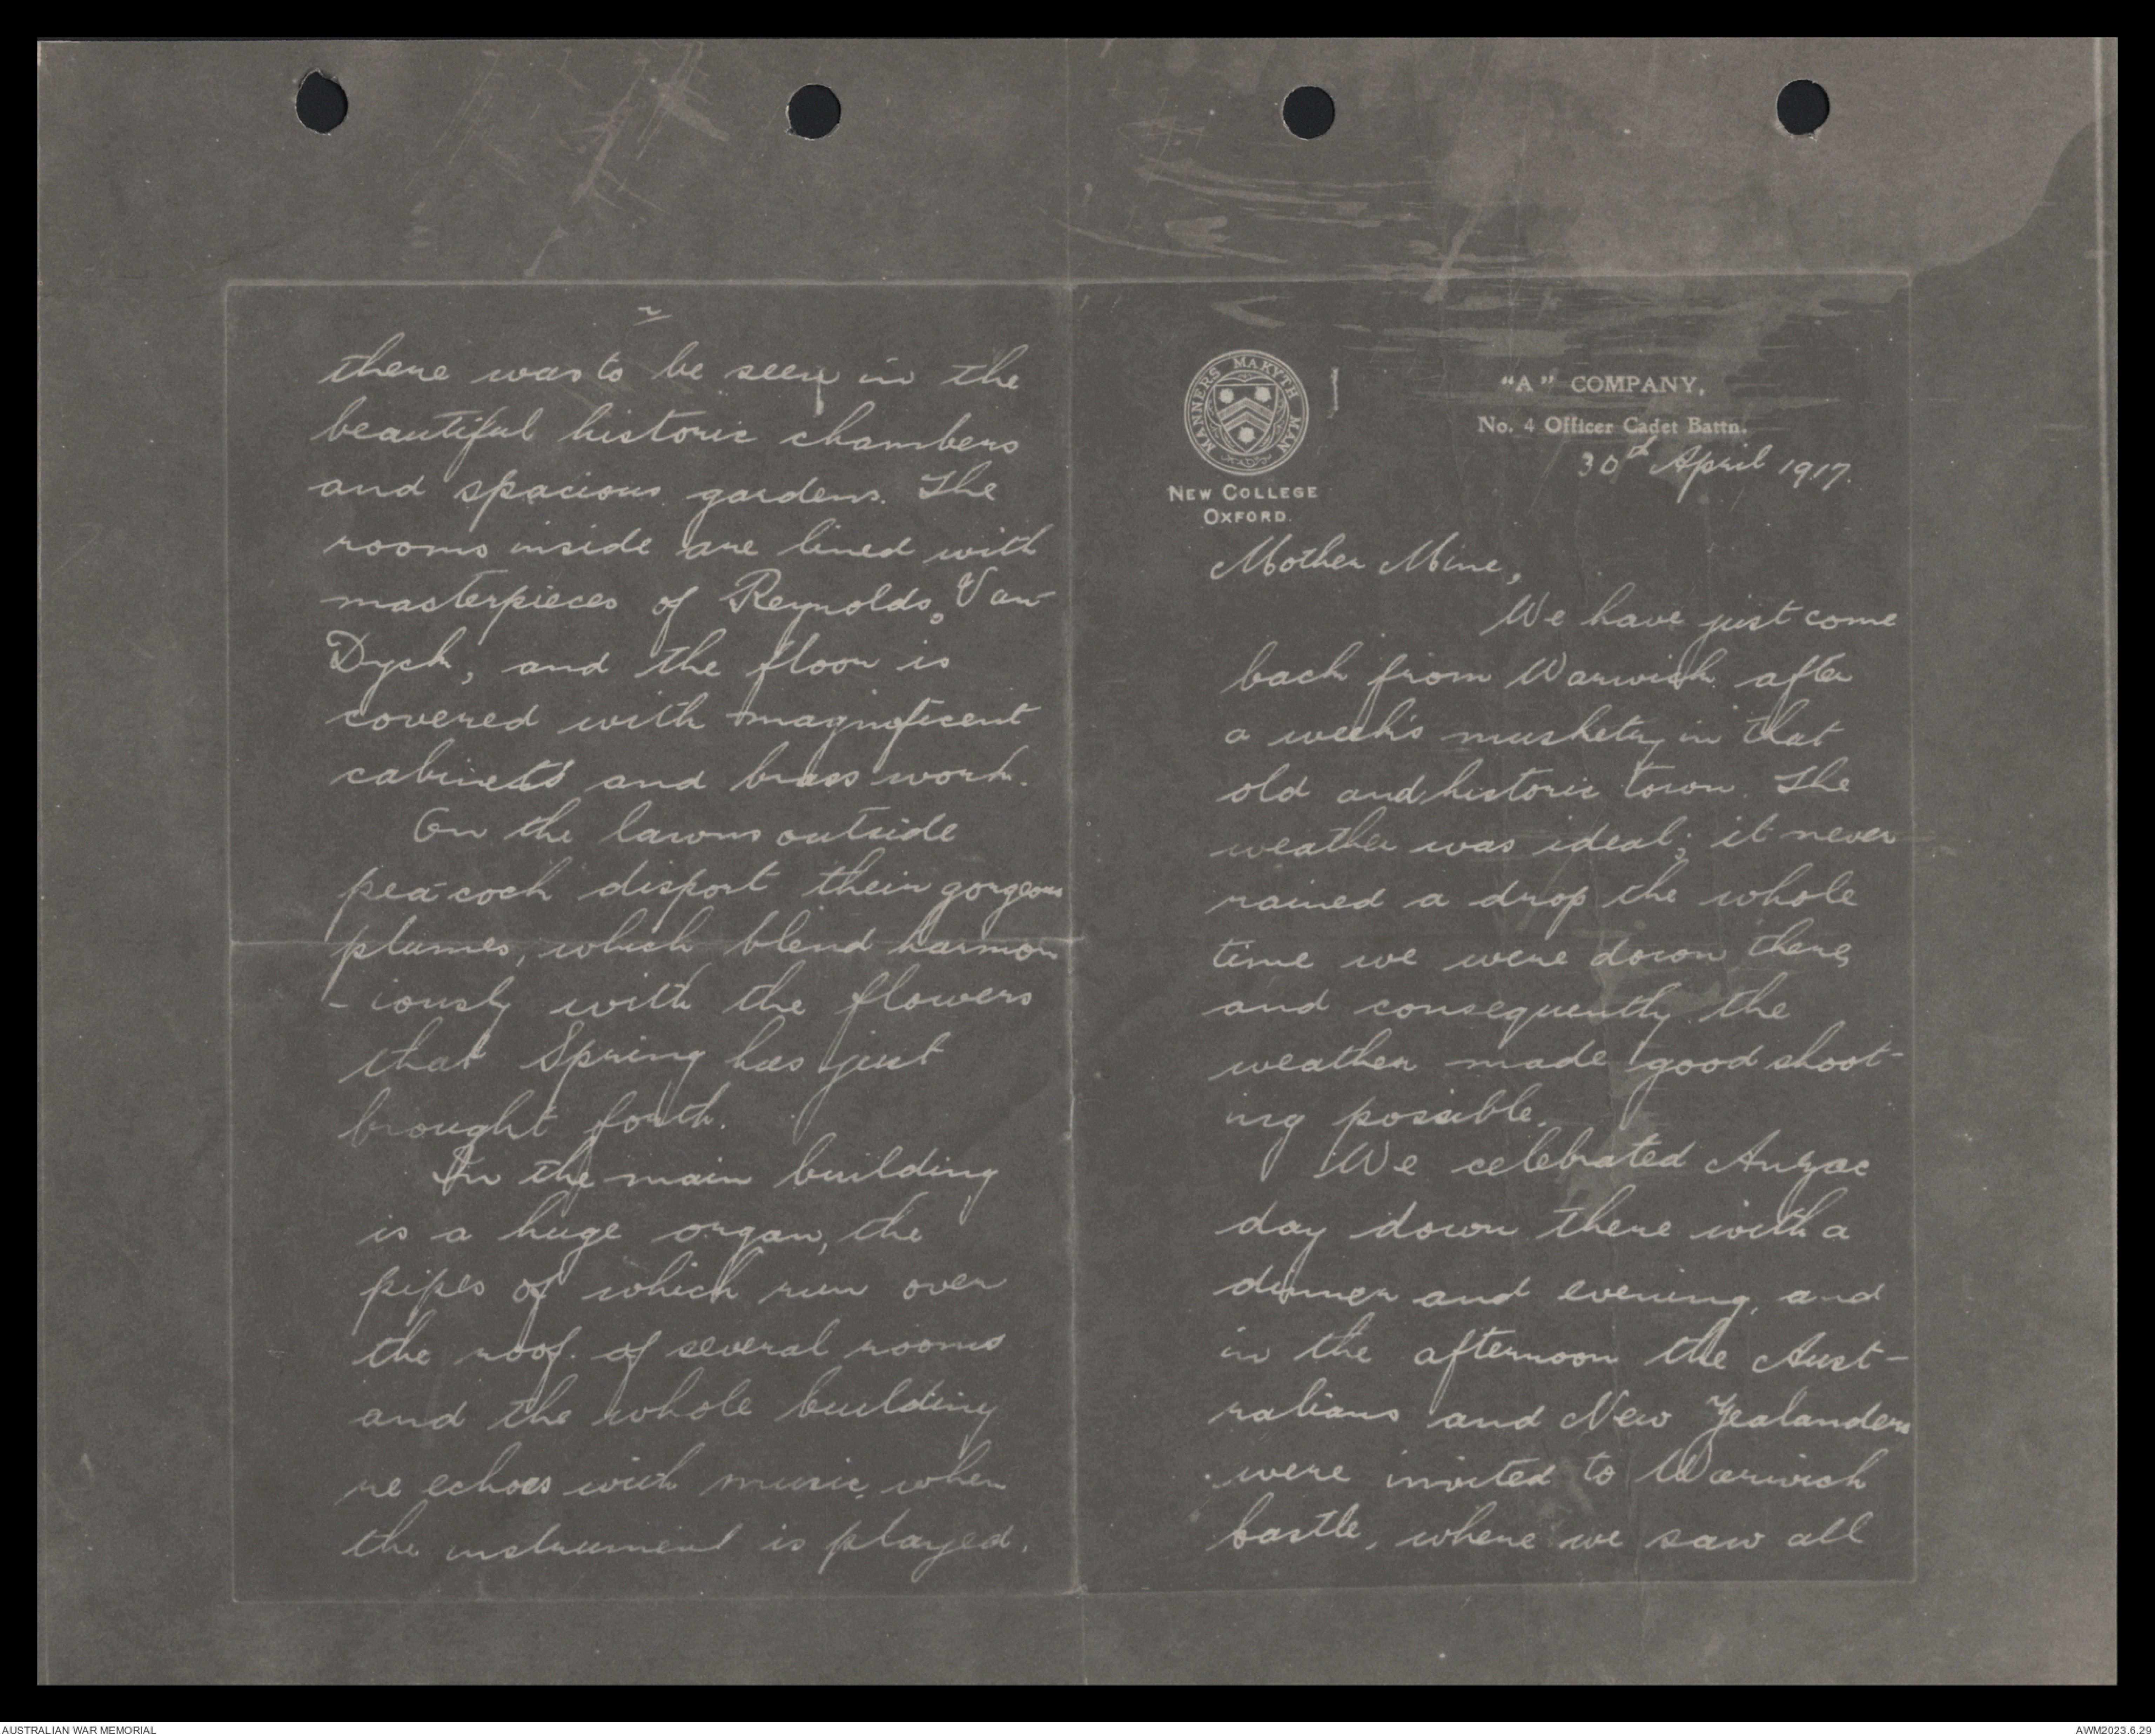 MANNERS MAKYTH MAN
NEW COLLEGE
OXFORD.
"A" COMPANY,
No. 4 Officer Cadet Battn.
30th April 1917.
Mother Mine,
We have just come
back from Warwick after
a week's musketry in that
old and historic town. The
weather was ideal; it never
rained a drop the whole
time we were down there,
and consequently the
weather made good shoot-
ing possible.
We celebrated Anzac
day down there with a
dinner and evening, and
in the afternoon the Aust-
ralians and New Zealanders
were invited to Warwick
Castle, where we saw all
2
there was to be seen in the
beautiful historic chambers
and spacious gardens. The
rooms inside are lined with
masterpieces of Reynolds, Van-
Dyck, and the floor is
covered with magnificent
cabinets and brass work.
On the lawns outside
peacock disport their gorgeous
plumes, which blend harmon
-iously with the flowers
that Spring has just
brought forth.
In the main building
is a huge organ, the
pipes of which run over
the roof of several rooms
and the whole building
re echoes with music when
the instrument is played.
AUSTRALIAN WAR MEMORIAL
AWM2023.6.29